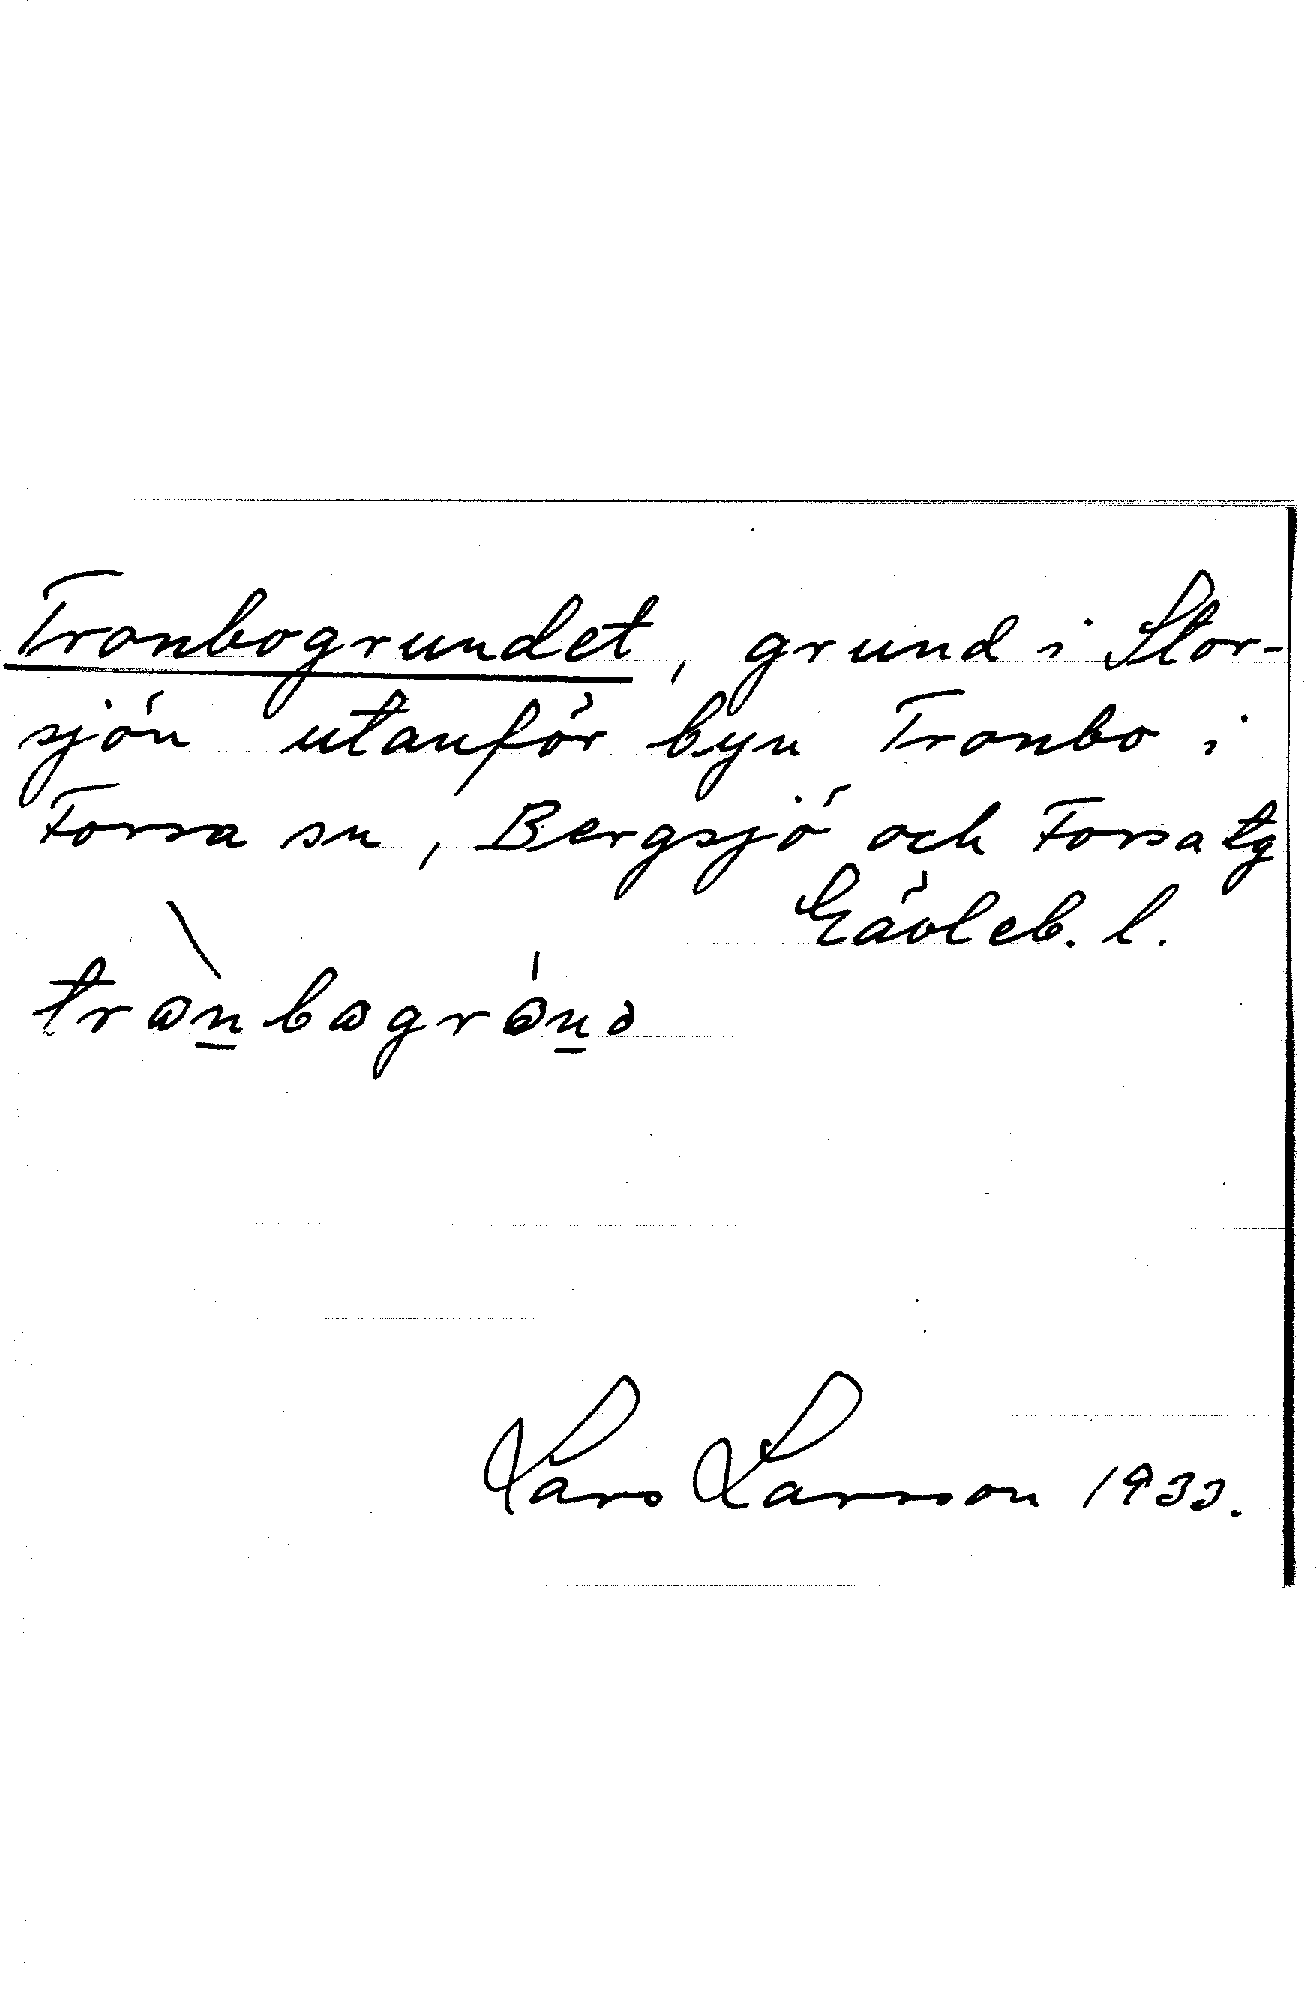 Tronbogrundet, grund i Stor-
sjön utanför byn Tronbo i
Forsa sn, Bergsjö och Forsa tg
Gävleb. l.
Lars Larsson 1933.